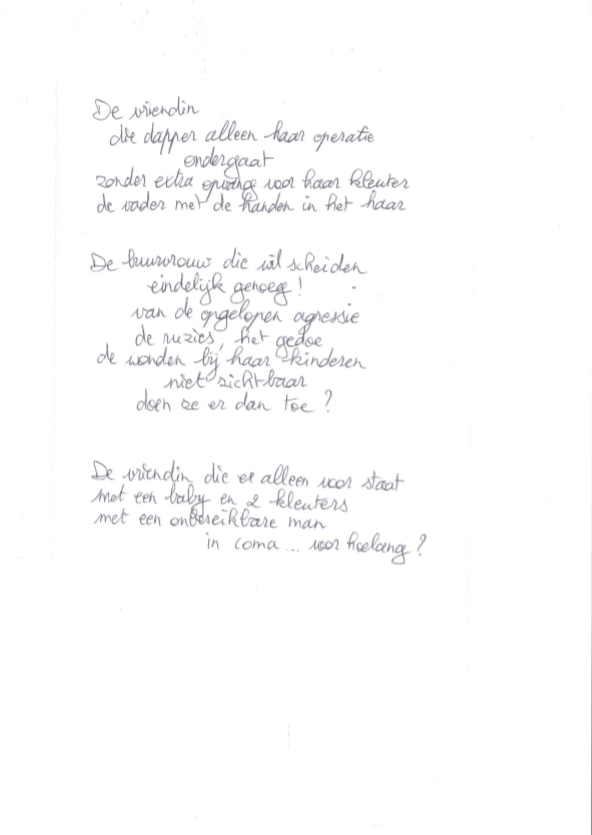 De vriendin
die dapper alleen haar operatie
ondergaat
zonder extra opvang voor haar kleuter
de vader met de handen in het haar
De buurvrouw die wil scheiden
eindelijk genoeg!
van de opgelopen agressie
de ruzies, het gedoe
de wonden bij haar kinderen
niet zichtbaar
doen ze er dan toe?
De vriendin die er alleen voor staat
met een baby en 2 kleuters
met een onbereikbare man
in coma ... voor hoelang?